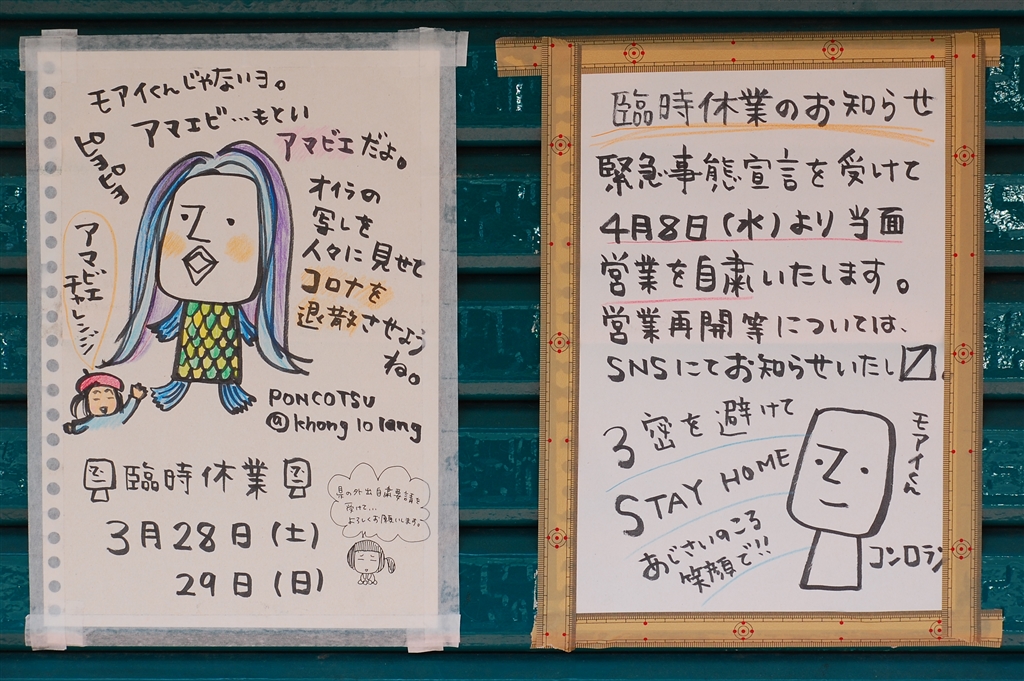 モアイくんじゃないヨ。
アマエビ…もとい
アマビエだよ。
ピヨピヨ
オイラの
写しを
人々に見せて
コロナを
退散させよう
ね。
アマビエ
チャレンジ
PONCOTSU
@khong lo lang
臨時休業
県の外出自粛要請を
受けて…
よろしくお願いします。
3月28日(土)
29日(日)
臨時休業のお知らせ
緊急事態宣言を受けて
4月8日(水)より当面
営業を自粛いたします。
営業再開等については、
SNSにてお知らせいたし〼.
3密を避けて
STAY HOME
あじさいのころ
笑顔で!!
モアイくん
コンロラン